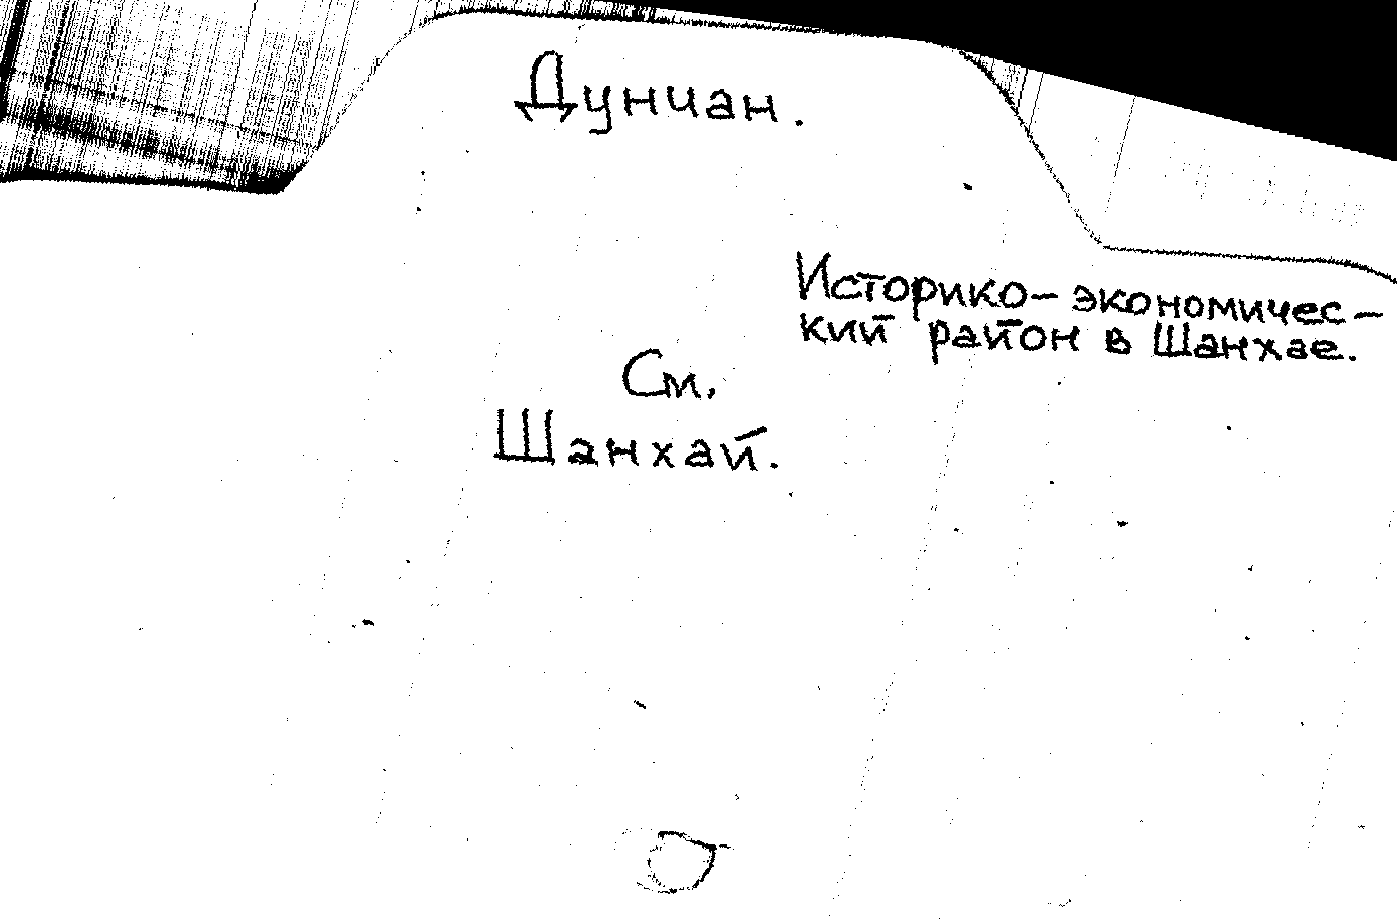 Дуниан.
Историко-экономичес-
кий район в Шанхае.
См.
Шанхай.